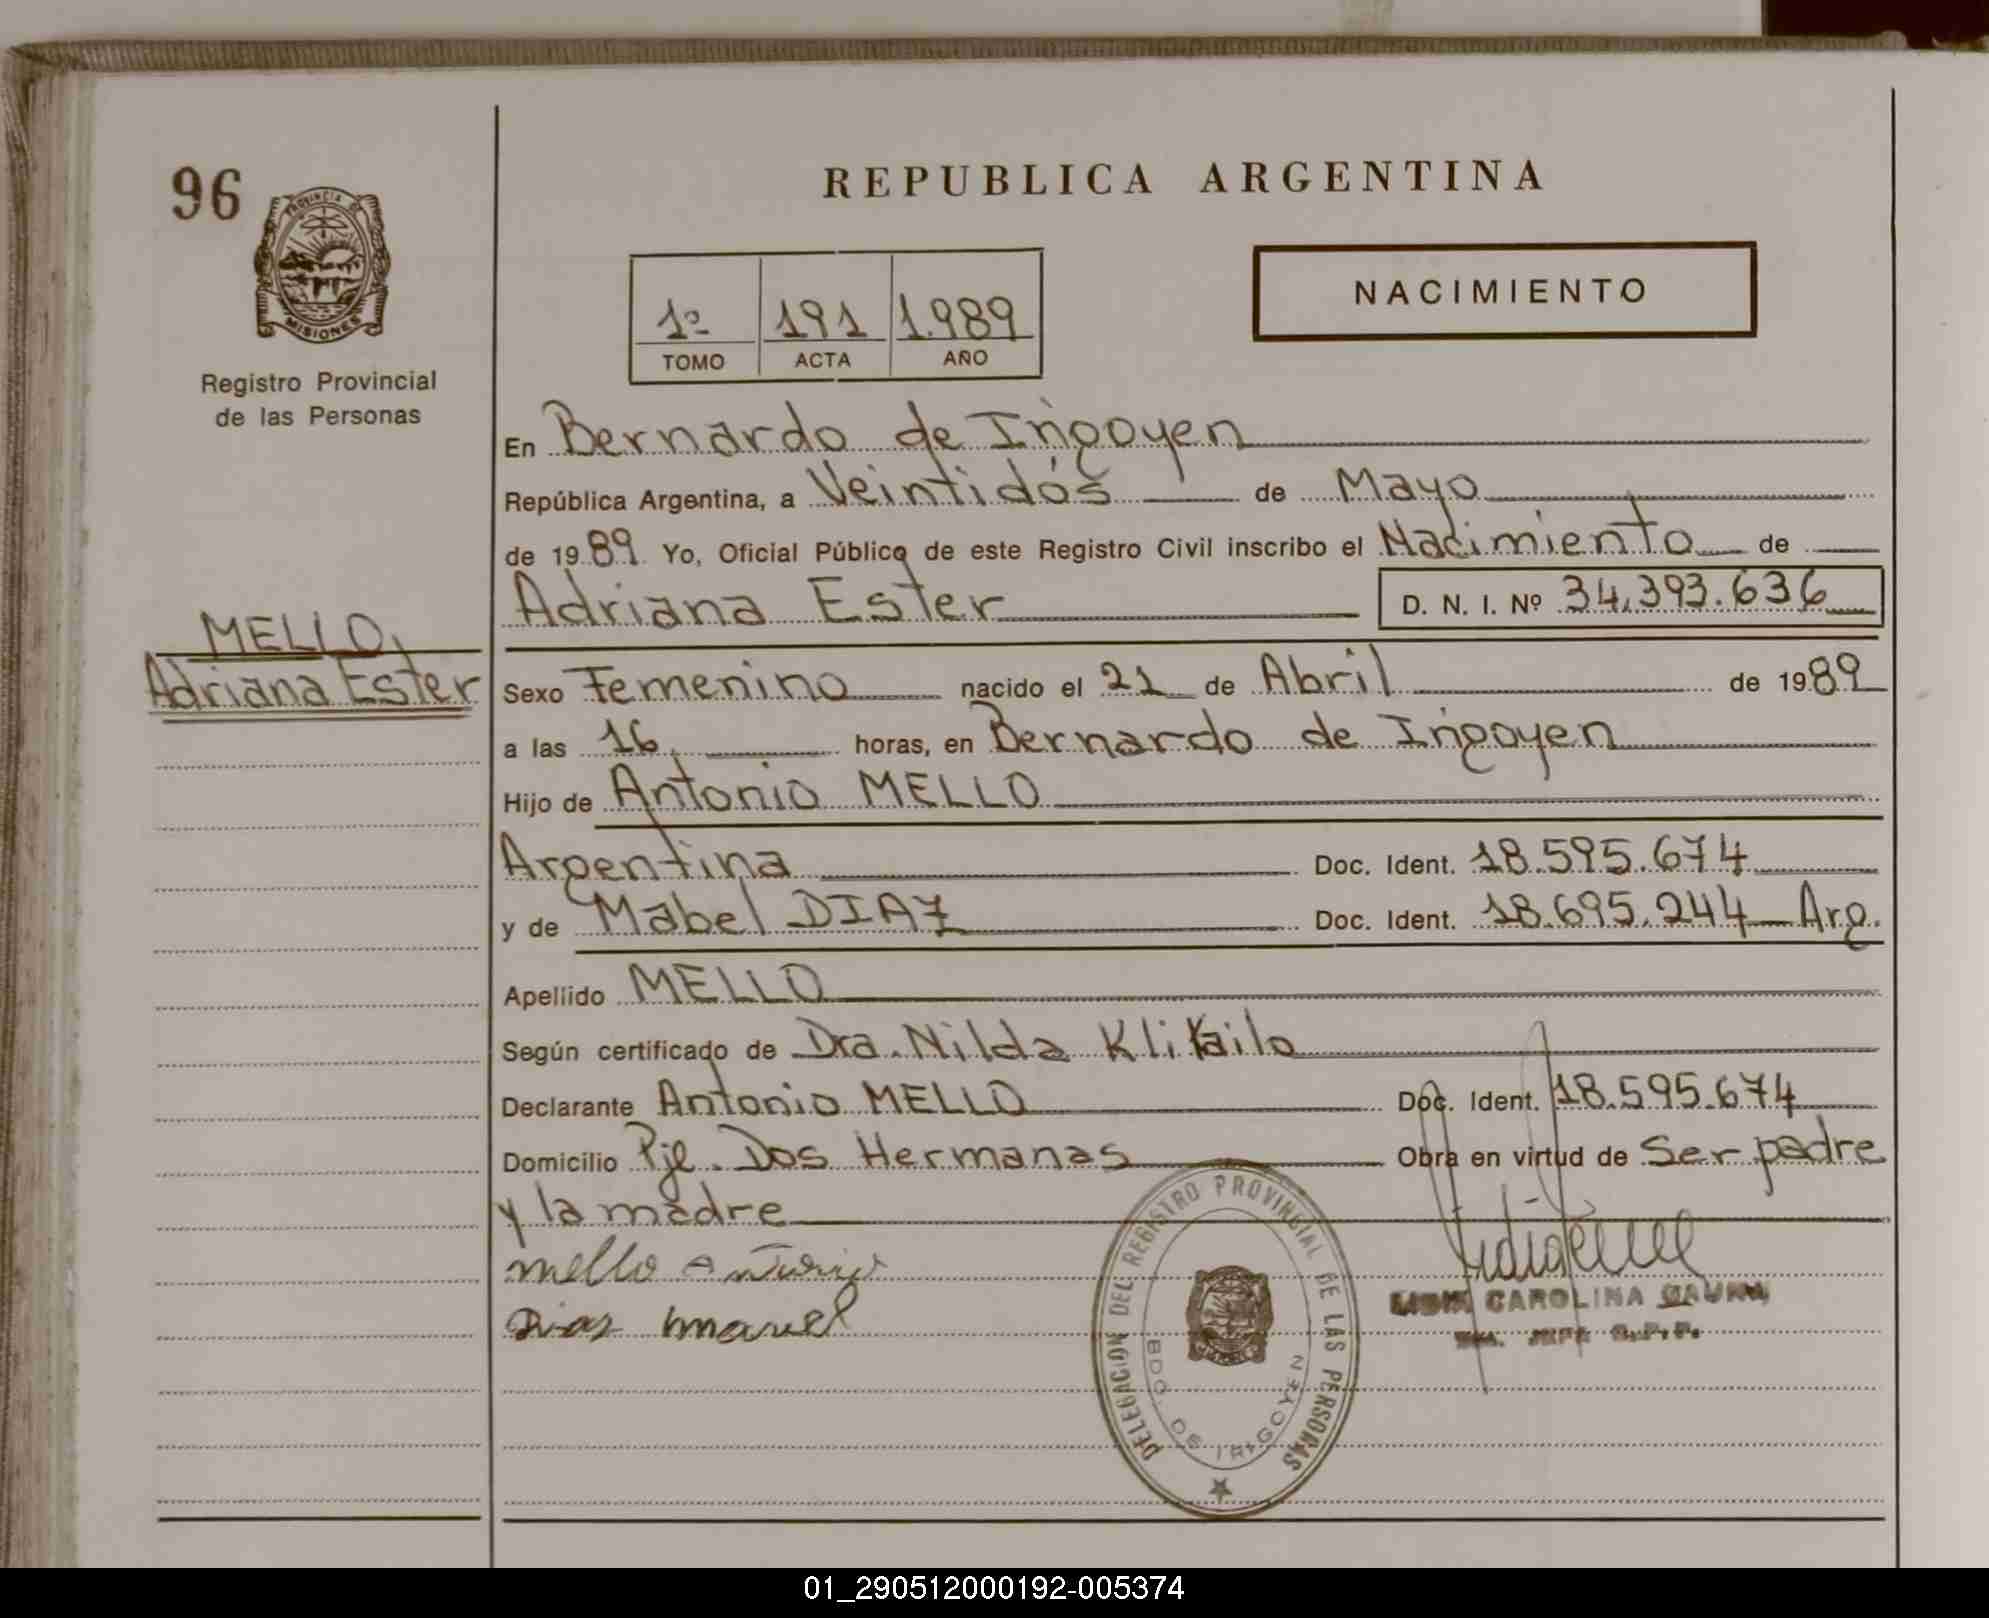 96
PROVINCIA DE
MISIONES
Registro Provincial
de las Personas
REPUBLICA ARGENTINA
1º 191 1.989
TOMO ACTA AÑO
NACIMIENTO
En Bernardo de Irigoyen
República Argentina, a Veintidós de Mayo
de 1989 Yo, Oficial Público de este Registro Civil inscribo el Nacimiento de
Adriana Ester D. N. I. Nº 34.393.636
MELLO,
Adriana Ester
Sexo Femenino nacido el 21 de Abril de 1989
a las 16 horas, en Bernardo de Irigoyen
Hijo de Antonio MELLO
Argentina Doc. Ident. 18.595.674
y de Mabel DIAZ Doc. Ident. 18.695.244 Arg.
Apellido MELLO
Según certificado de Dra. Nilda Klikailo
Declarante Antonio MELLO Doc. Ident. 18.595.674
Domicilio Pje. Dos Hermanas Obra en virtud de Ser padre
y la madre
mello Antonio
Dias mavel
DELEGACION DEL REGISTRO PROVINCIAL DE LAS PERSONAS
BDO. DE IRIGOYEN
CAROLINA
JEFE R.P.P.
01_290512000192-005374